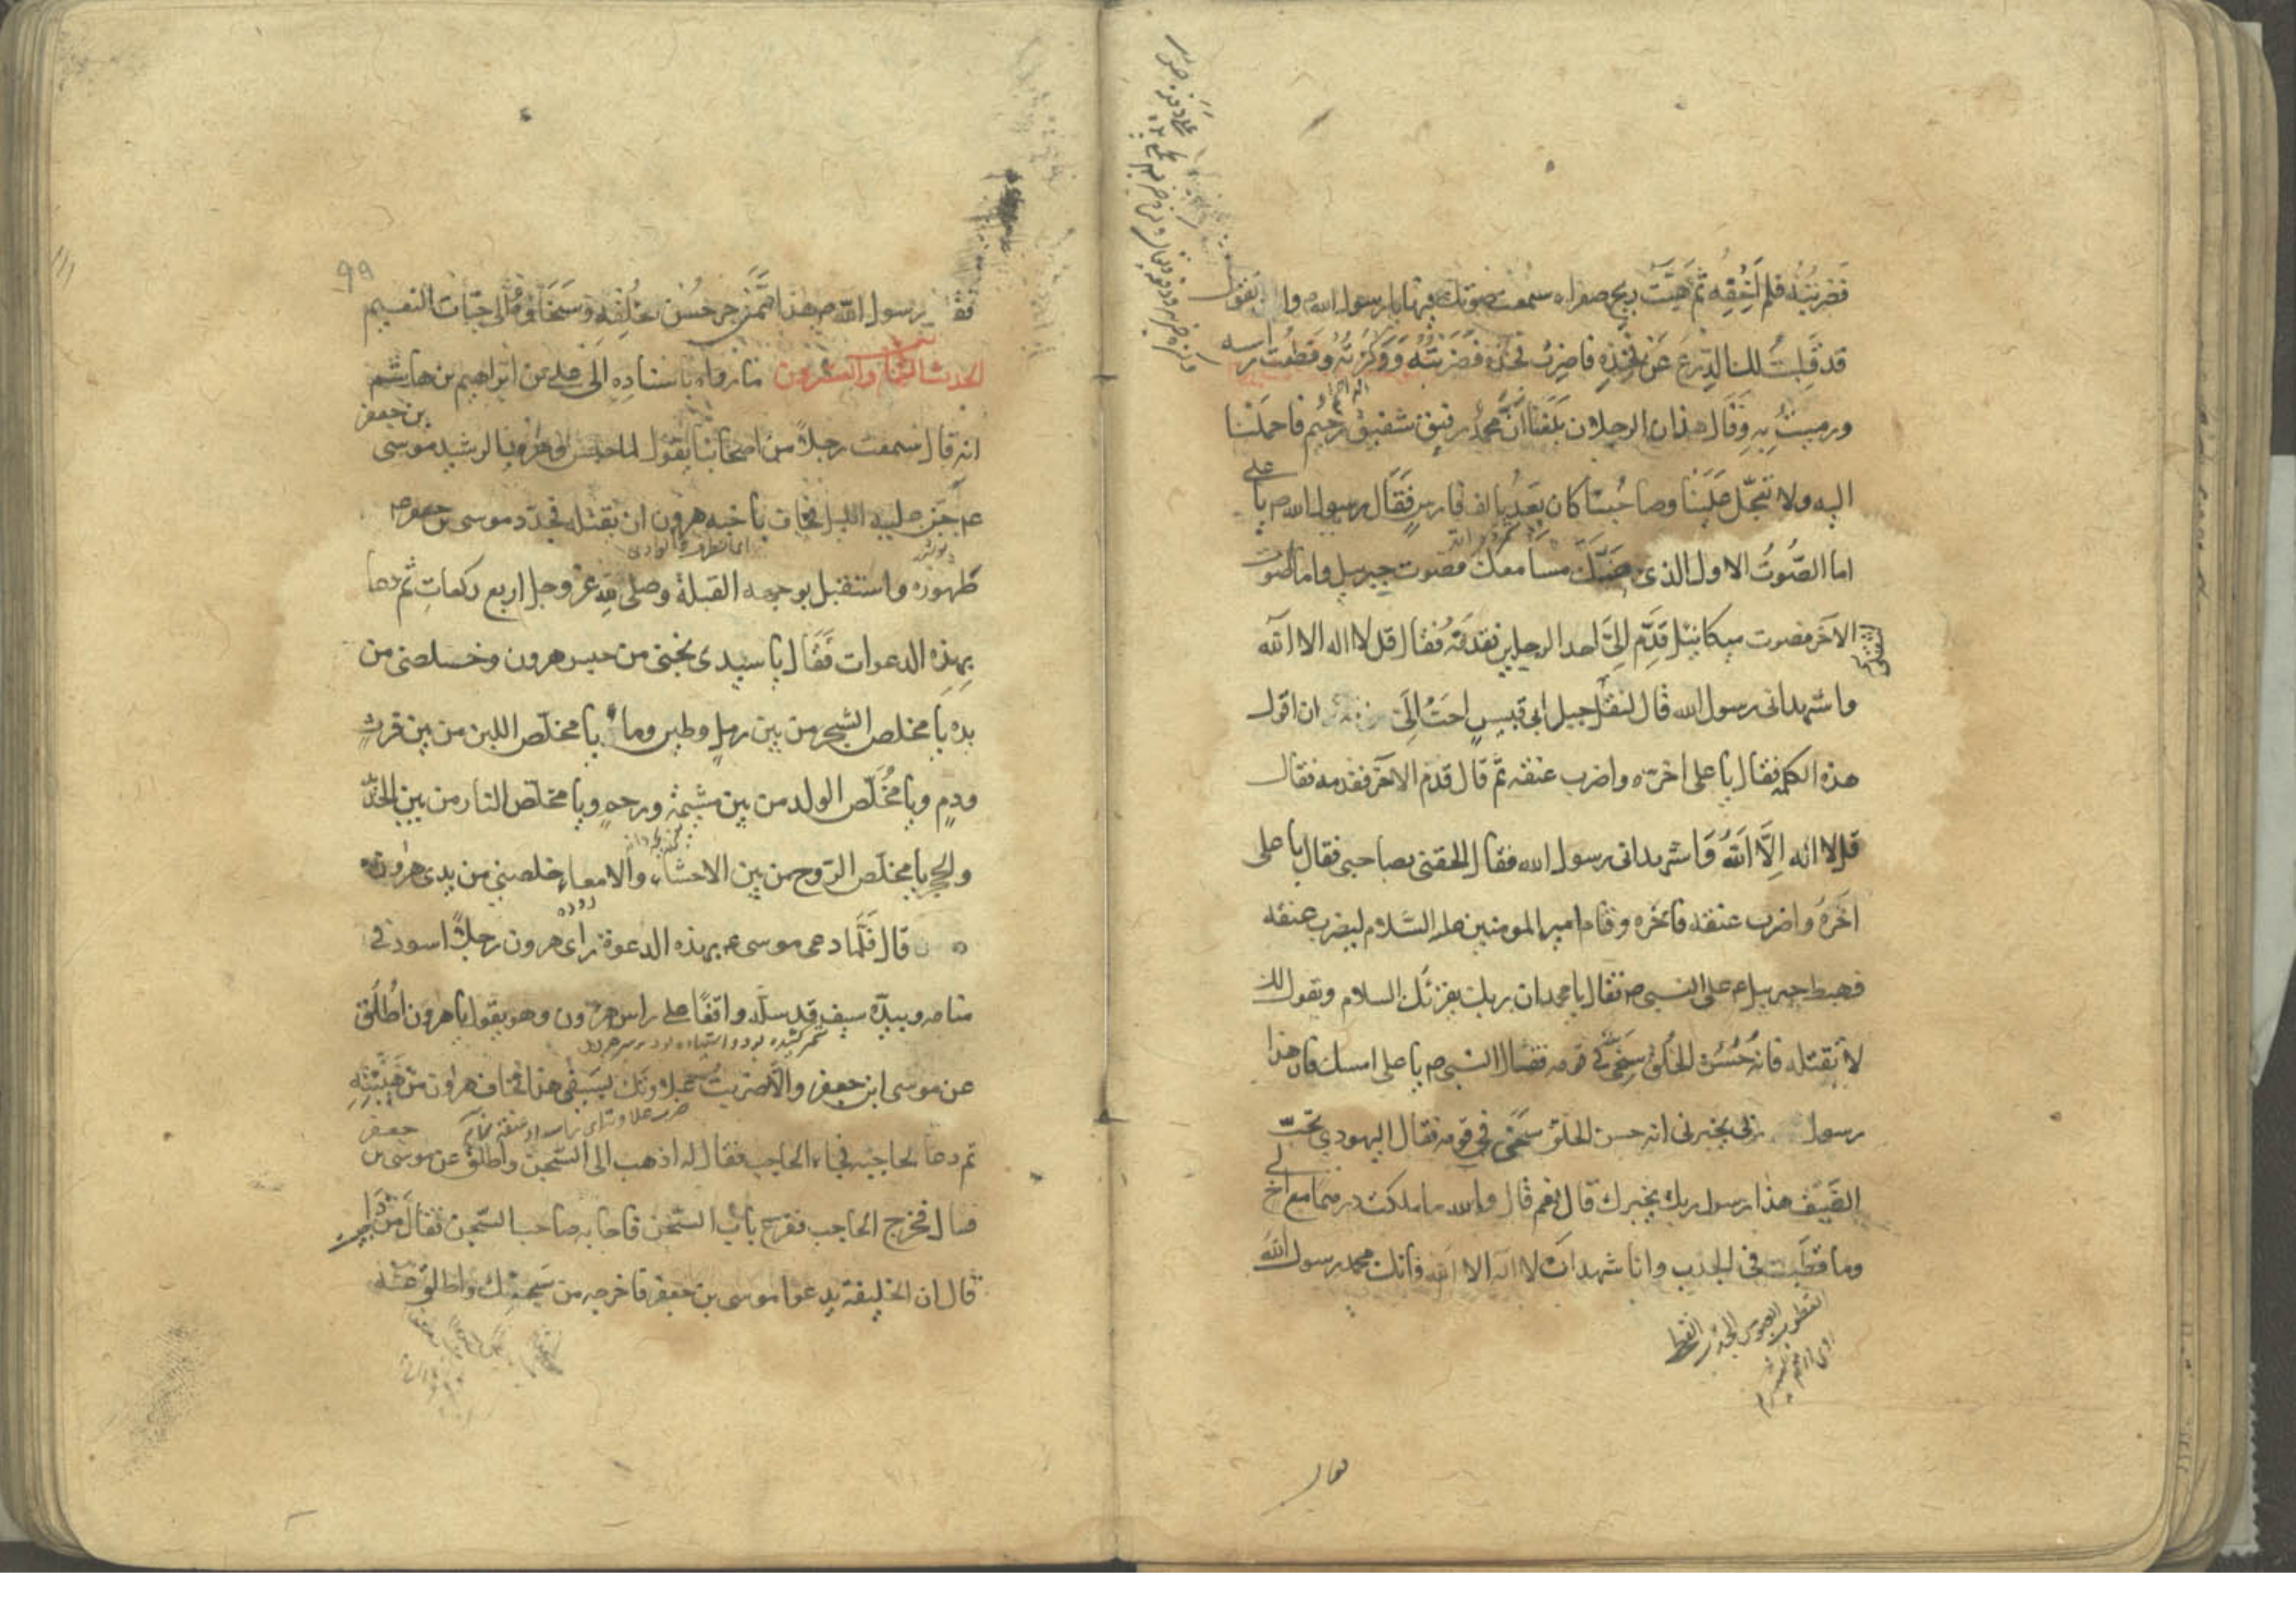 فضربته فلم اخفه ثم هبت ريح صفراء سمعت صوتك فيها يا رسول الله وانت تقول
قد قلبت لك الدرع عن فخذه فاضرب فخذه فضربته ووكزته وقطعت راسه
ورميت به وقال هذان الرجلان بلغنا ان محمد رفيق شفيق رحيم فاحملنا
اليه ولا تعجل علينا وصاحبنا كان يعد بالف فارس فقال رسول الله ص يا علي
اما الصوت الاول الذي صك مسامعك فصوت جبرئيل واما الصوت
الآخر فصوت ميكائيل قدم الي احد الرجلين فقدمته فقال قل لا اله الا الله
واشهد اني رسول الله قال لنقل جبل ابي قبيس احب الي من ان اقول
هذه الكلمة فقال يا علي اخره واضرب عنقه ثم قال قدم الآخر فقدمه فقال
قل لا اله الا الله واشهد اني رسول الله فقال الحقني بصاحبي فقال يا علي
اخره واضرب عنقه فاخره وقام امير المومنين عليه السلام ليضرب عنقه
فهبط جبرييل ع على النبي ص فقال يا محمد ان ربك يقرئك السلام ويقول لك
لا تقتله فانه حسن الخلق سخي في قومه فقال النبي ص يا علي امسك فان هذا
رسول ربي يخبرني انه حسن الخلق سخي في قومه فقال اليهودي تحت
السيف هذا رسول ربك يخبرك قال نعم قال والله ما ملكت درهما مع اخ لي
وما قطبت في الجدب وانا شهد ان لا اله الا الله وانك محمد رسول الله
فقال رسول الله ص هذا ممن جر حسن خلقه وسخاؤه الى جنات النعيم
الحديث الثامن والعشرون ما رواه باسناده الى علي بن ابراهيم بن هاشم
انه قال سمعت رجلا من اصحابنا يقول لما حبس هرون الرشيد موسى بن جعفر
ع جن عليه الليل فخاف ناحية هرون ان يقتله فجدد موسى بن جعفر ع
طهوره واستقبل بوجهه القبلة وصلى لله عز وجل اربع ركعات ثم دعا
بهذه الدعوات فقال يا سيدي نجني من حبس هرون وخلصني من
يده يا مخلص الشجر من بين رمل وطين وماء يا مخلص اللبن من بين فرث
ودم ويا مخلص الولد من بين مشيمة ورحم ويا مخلص النار من بين الحديد
والحجر يا مخلص الروح من بين الاحشاء والامعاء خلصني من يدي هرون
قال فلما دعى موسى ع بهذه الدعوة راى هرون رجلا اسود في
منامه وبيده سيف قد سله واقفا على راس هرون وهو يقول يا هرون اطلق
عن موسى ابن جعفر والا ضربت علاوتك بسيفي هذا فخاف هرون من هيبته
ثم دعا لحاجبه فجاء الحاجب فقال له اذهب الى السجن واطلق عن موسى بن جعفر
قال فخرج الحاجب فقرع باب السجن فاجابه صاحب السجن فقال من ذا
قال ان الخليفة يدعوا موسى بن جعفر فاخرجه من سجنك واطلق عنه